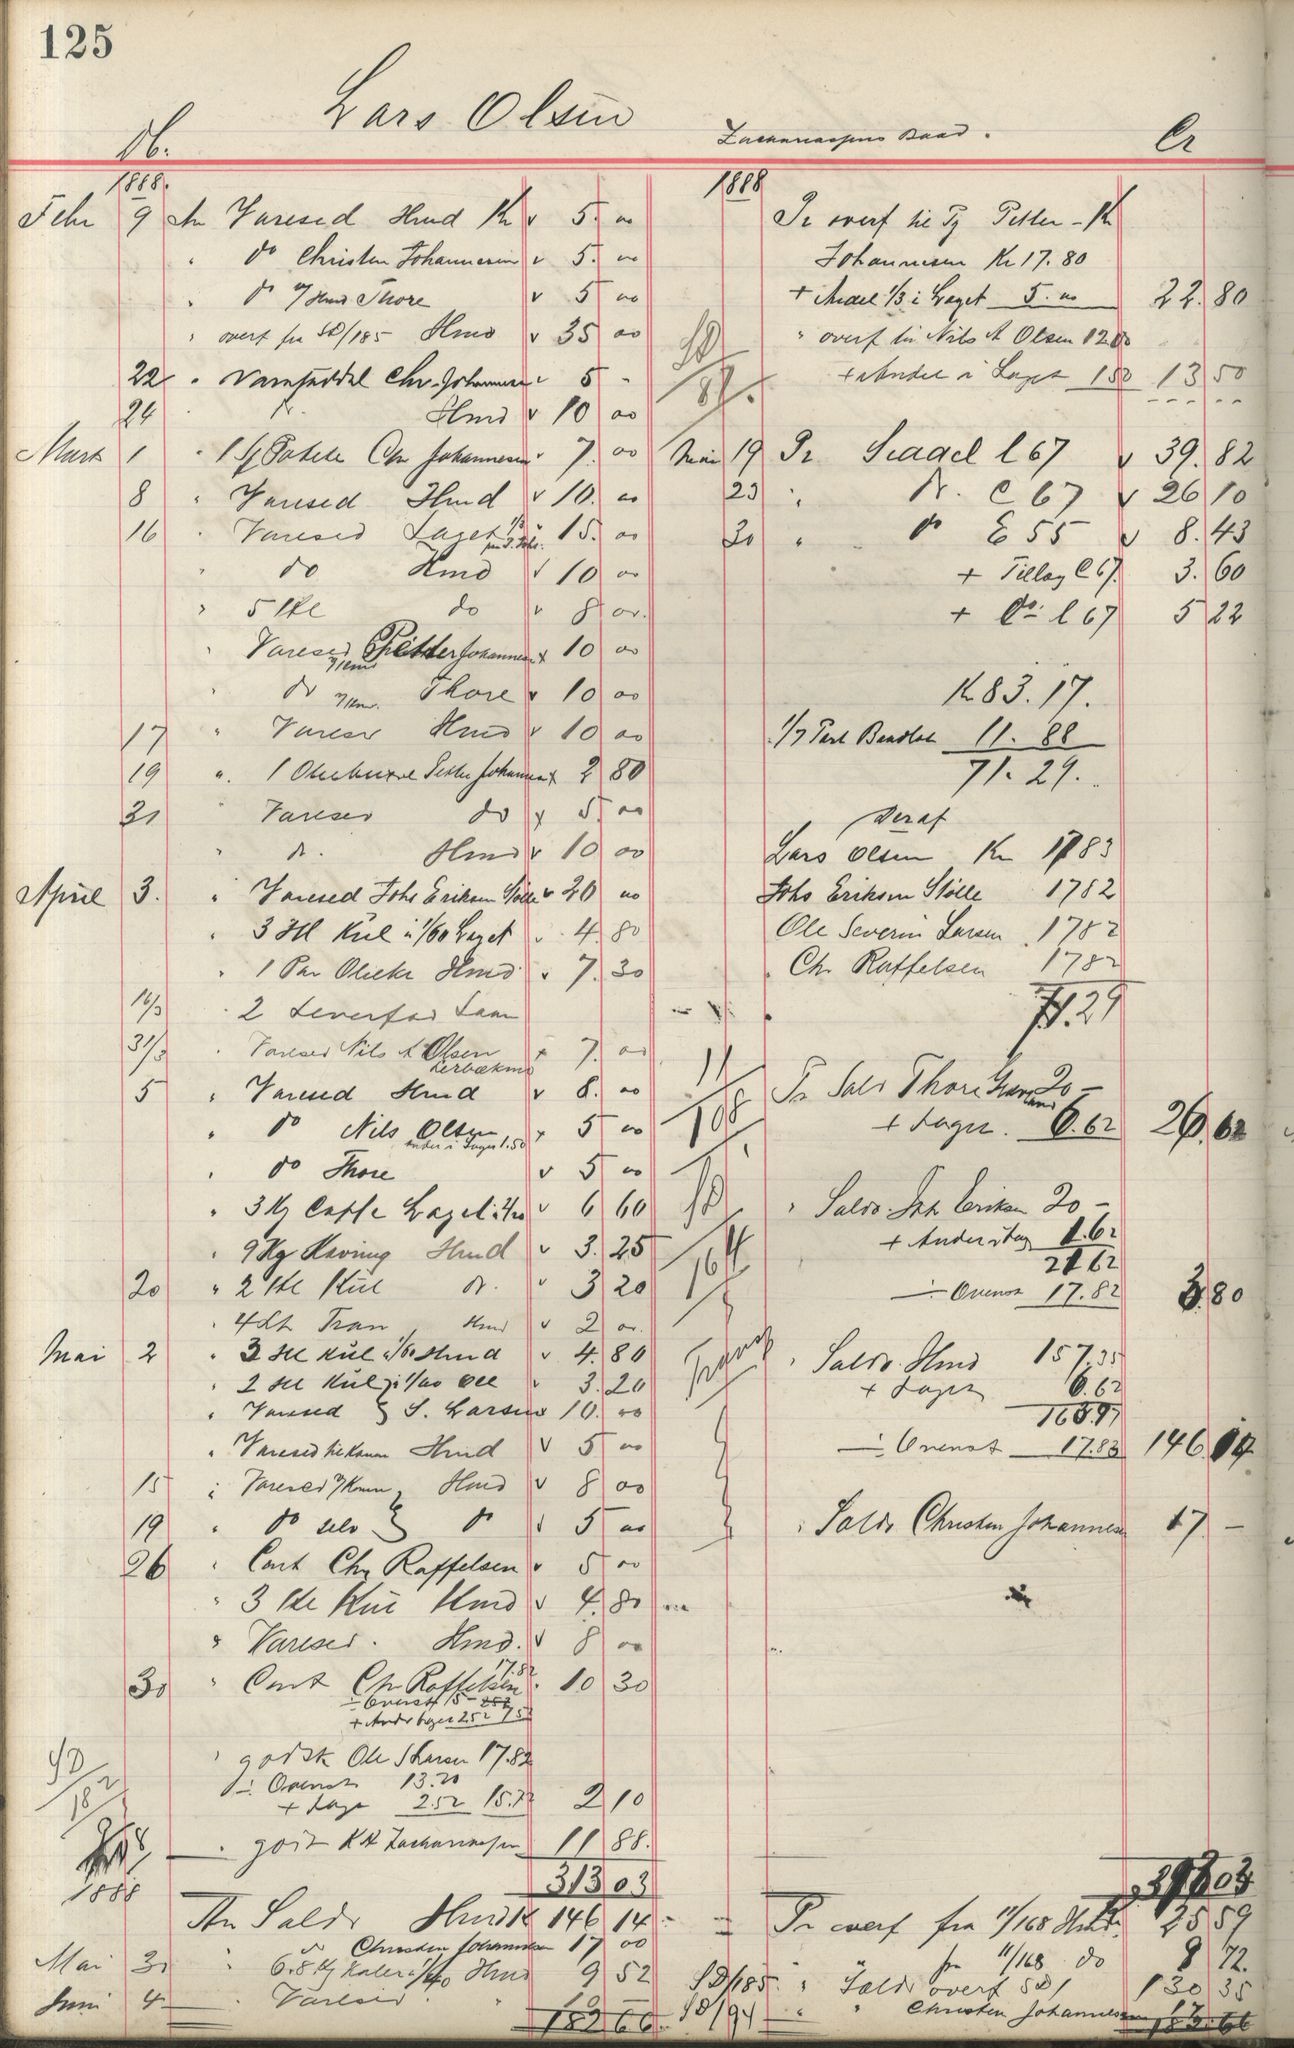 125
Lars Olsen
Db.
Zachariassens Baad.
Cr
1888.
Febr 9 An Varesed Hmd Kr v 5. 00
" do Christen Johannesen v 5. 00
" do Hmd Thore v 5 00
" overf fra SD/185 Hmd v 35 00
22 " Chr. Johannesen 5 -
24 Hmd v 10 00
Marts 1 " Chr Johannesen 7. 00
8 " Varesed Hmd v 10. 00
16 " Varesed Laget 1/3 15. 00
" do Hmd v 10 00
" 5 Hl do v 8 00
" Varesed Petter Johannesen x 10 00
" do Thore v 10 00
17 " Varesed Hmd v 10 00
19 " 1 Petter Johannesen x 2 80
31 " Varesed do x 5. 00
" do. Hmd v 10 00
April 3. " Varesed Johs Eriksen Stölle v 20 00
" 3 Hl Kul a 1/60 Laget v 4. 80
" 1 Par Hmd v 7. 30
16/3 " 2
31/3 " Varesed Nils A Olsen x 7. 00
5 " Varesed Hmd v 8. 00
" do Nils Olsen x 5 00
Andel i Laget 1.50
" do Thore v 5 00
" 3 Kg Caffe Laget a 2/20 v 6 60
" 9 Kg Kavring Hmd v 3. 25
20 " 2 Hl Kul do. v 3 20
" Tran Hmd v 2 00
Mai 2 " 3 Hl Kul a 1/60 Hmd v 4. 80
" 2 Hl Kul a 1/60 Ole v 3. 20
" Varesed S. Larsen 10. 00
" Varesed Hmd v 5 00
15 " Varesed Hmd v 8 00
19 " do selv do v 5 00
26 " Cont Chr Raffelsen v 5 00
" 3 Hl Kul Hmd v 4. 80
" Varesed. Hmd. v 8 00
30 " Cont Chr Raffelsen 17.82 10 30
÷ Ovenst 5 -
+ Andel Laget 2.52 7 52
SD/182
" godsk Ole S Larsen 17.82
÷ Ovenst 13.20
+ Laget 2.52 15.72 2 10
1888
" godsk Zachariassen 11 88.
313 03
An Saldo Hmd Kr 146 14
" do Christen Johannesen 17 00
Mai 30 " 6.8 Kg a 1/40 Hmd 9 52
Juni 4 " Varesed " 10 -
182 66
1888
Pr overf til Pg Petter - Kr
Johannesen Kr 17.80
+ Andel 1/3 i Laget 5.00 22. 80
" overf til Nils A Olsen 12.00
+ Andel i Laget 1 50 13 50
SD/87.
Mai 19 Pr Seagel l 67 v 39. 82
23 " do. C 67 v 26 10
30 " do E 55 v 8. 43
+ Tillæg C 67. 3. 60
+ do l 67 5 22
Kr 83. 17.
1/7 Part 11. 88
71. 29.
Deraf
Lars Olsen Kr 17 83
Johs Eriksen Stölle 17 82
Ole Severin Larsen 17 82
Chr Raffelsen 17 82
71.29
11/108 Pr Saldo Thore 20 -
+ Laget. 6.62 26. 62
SD/164 " Saldo Joh Eriksen 20 -
+ Andel i Lag 1.62
21 62
÷ Ovenst 17.82 3. 80
Transp " Saldo Hmd 157.35
+ Laget 6.62
163.97
÷ Ovenst 17.83 146. 14
" Saldo Christen Johannesen 17 -
313 03
Pr overf fra 11/168 Hmd 25 59
" fra 11/168 do 9 72.
SD/185 " Saldo overf SD/ 130 35
SD/94 " " Christen Johannesen 17
182. 66